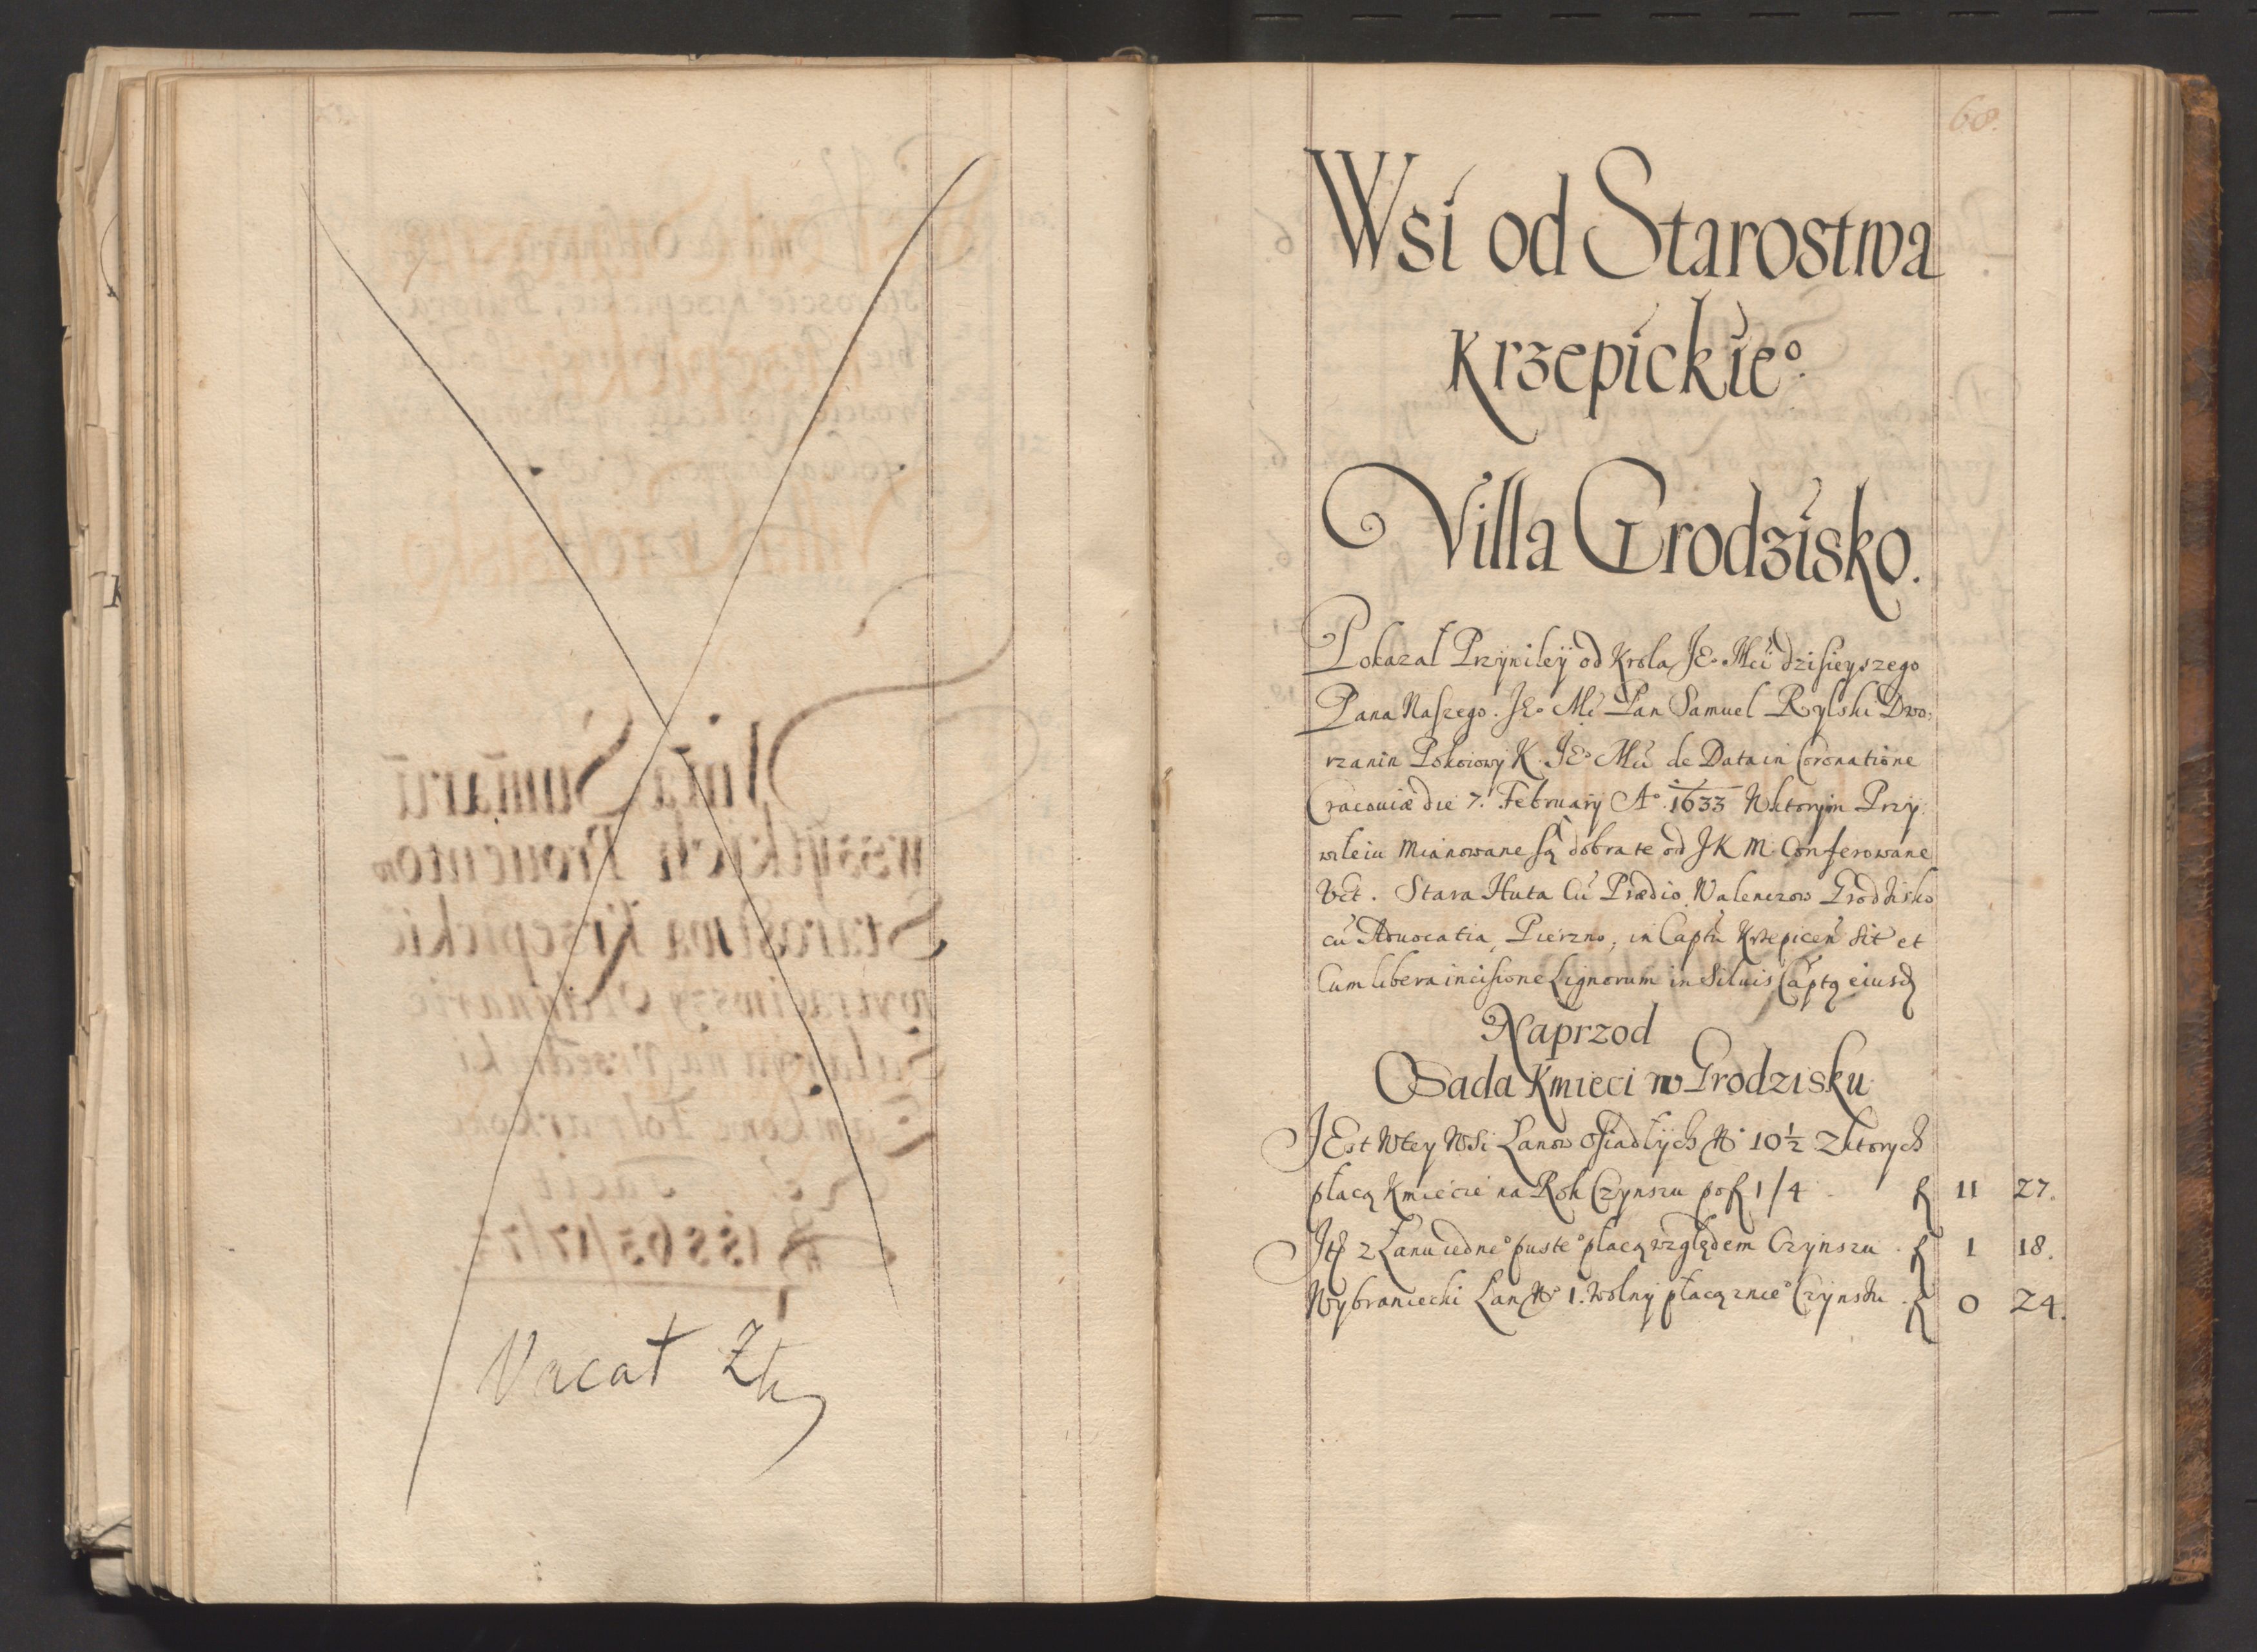 Vacat
68.
Wsi od Starostwa
Krzepickie°.
Villa Grodzisko.
Pokazał Przÿwileÿ od Krola JE° Mci dzisieyszego
Pana Naszego. JE° Mć Pan Samuel Rylski Dwo:
rzanin Pokoiowÿ K. JE° Mci de Data in Coronatione
Cracoviæ die 7. Februarÿ A° 1633 W ktorÿm Przÿ:
wileiu Mianowane są dobra te od JK M. Conferowane
Vct. Stara Huta Cū Prædio, Walenczow Grodzisko
cū Aduocatia, Pierzno, in Captū Krzepiceñ Sit et
Cum libera incisione Lignorum in Siluis Captq eiusd
Naprzod
Osada Kmieci w Grodzisku
JEst W tey WSi Łanow Osiadłÿch N° 10½ Z ktorych
płacą Kmiecie na Rok Czynszu po f 1/4 f 11 27.
Jtem z Łanu iedne° puste° płacą względem Czÿnszu f 1 18.
Wybraniecki Łan N° 1. Wolnÿ płacą znie° Czÿnszu f 0 24.